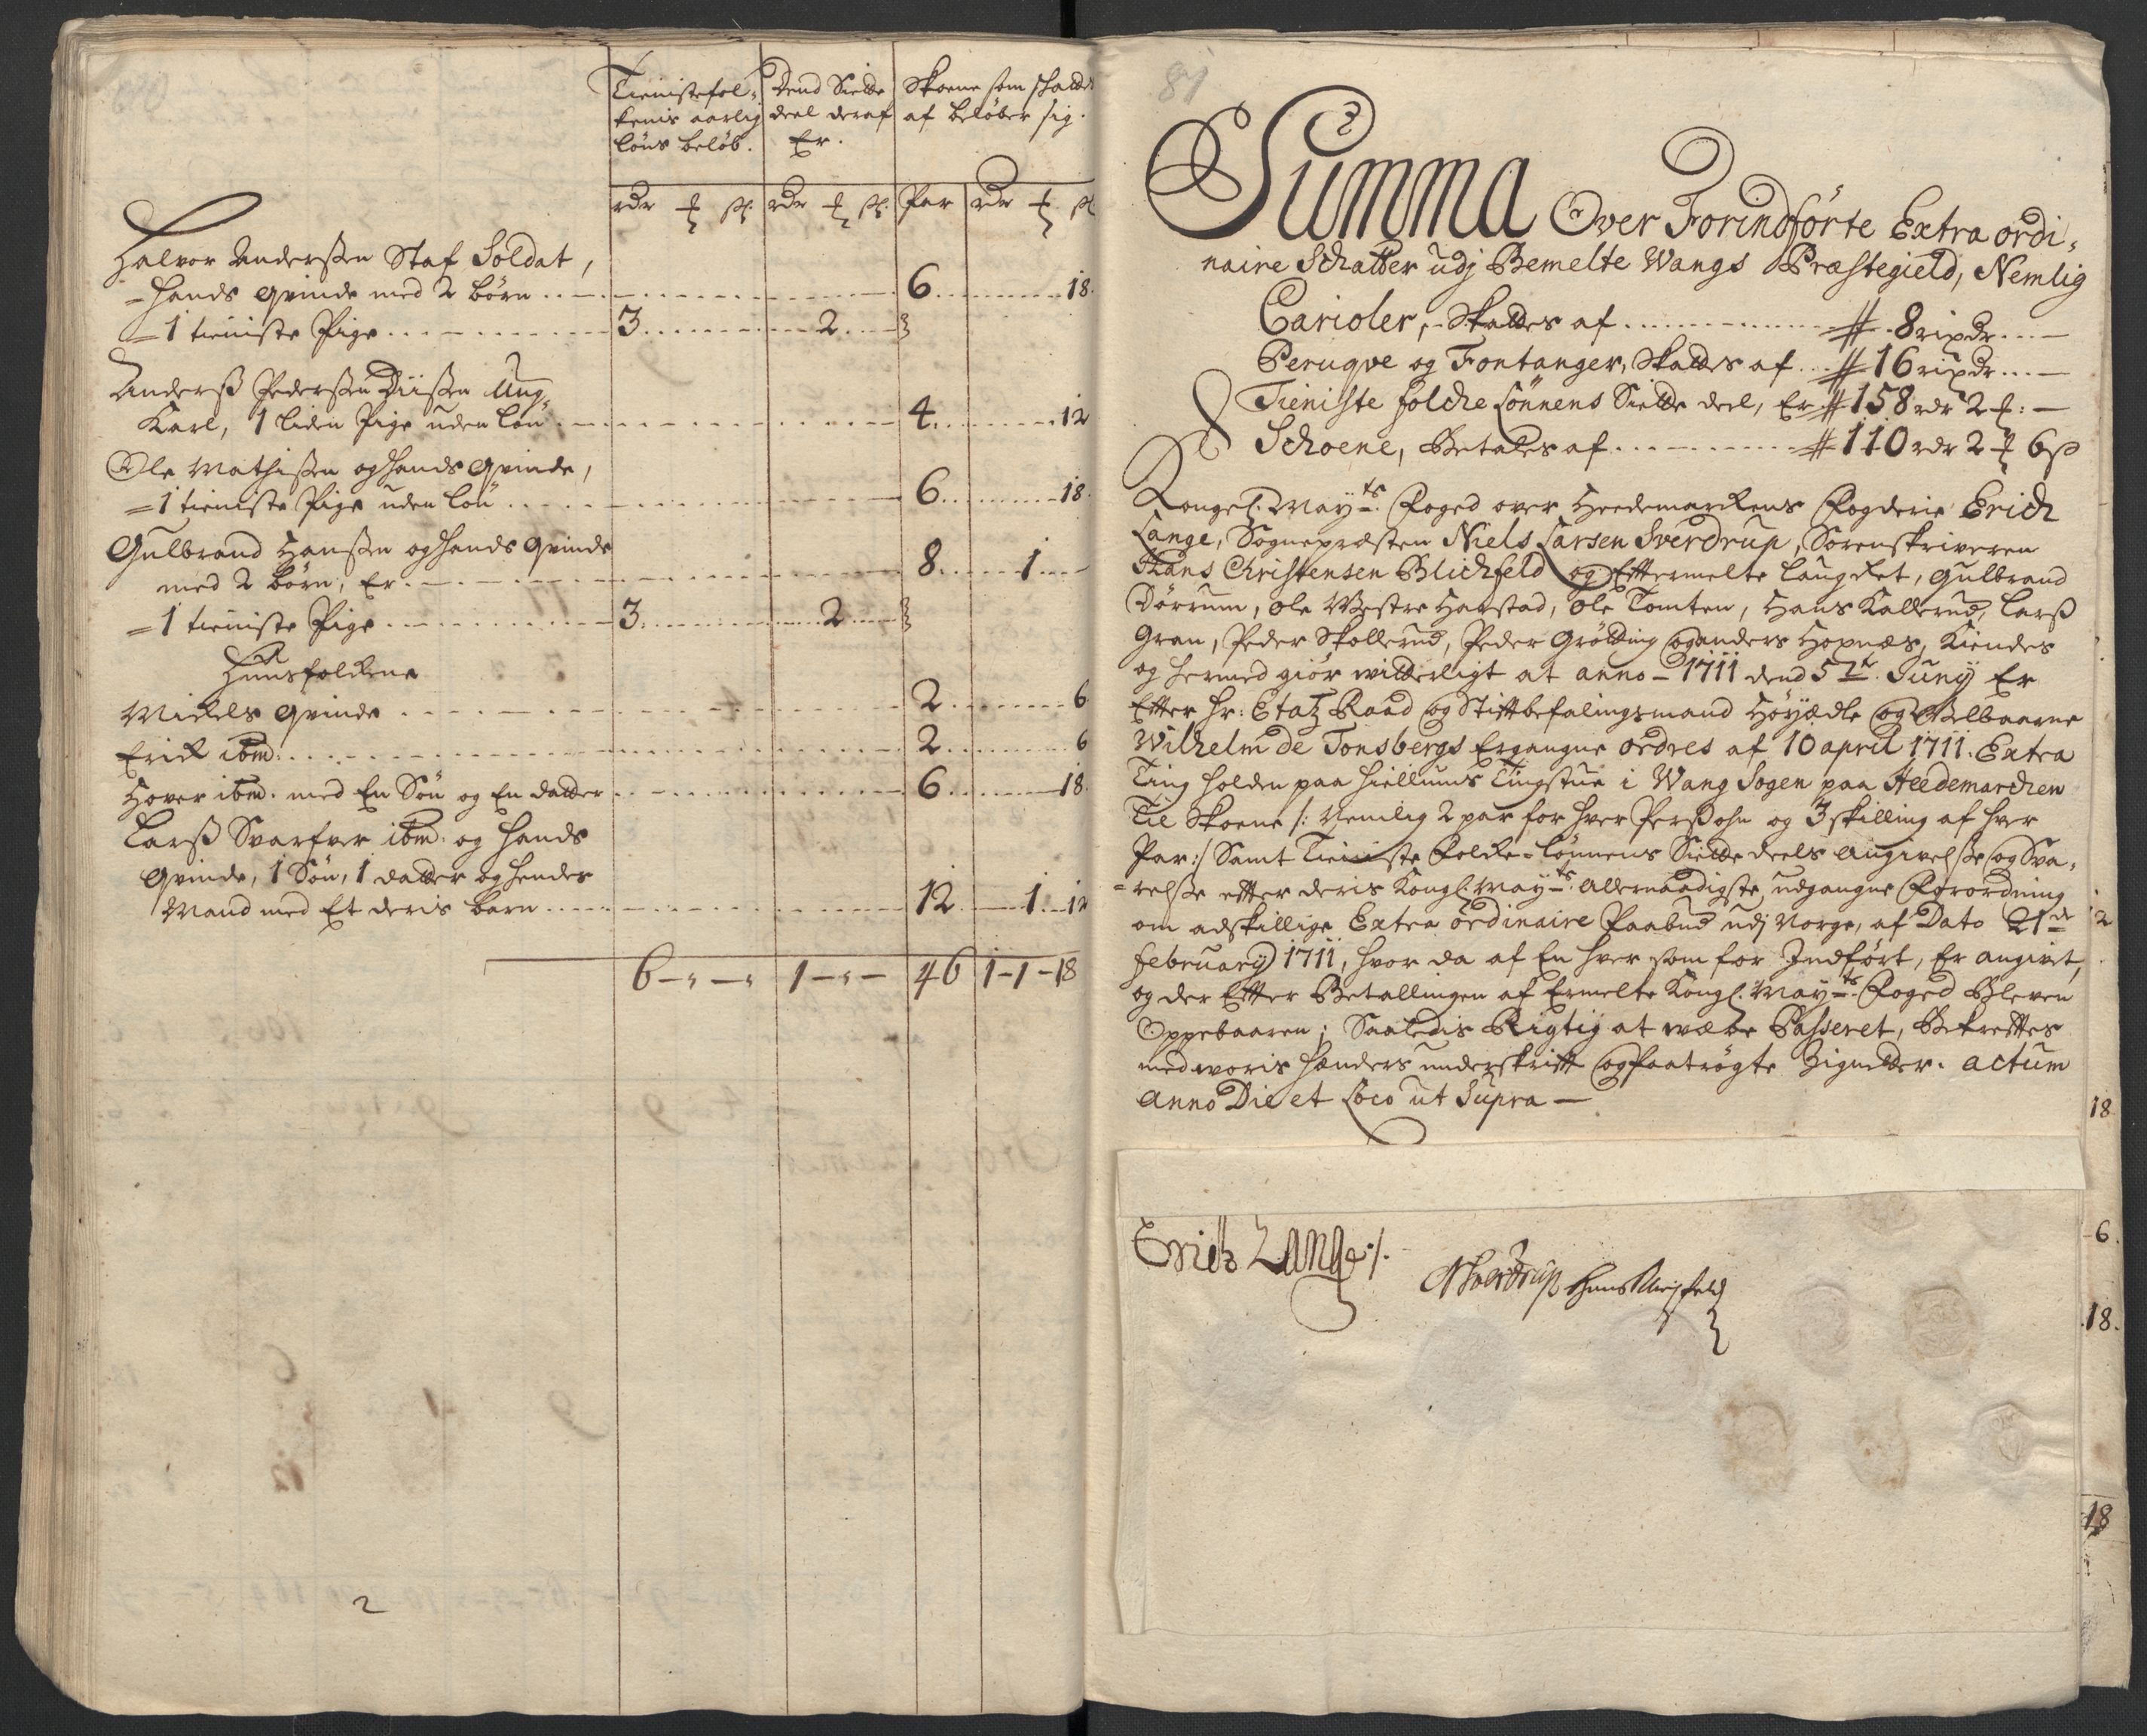 Tienistefol-
kenis aarlig
löns beløb.
Dend Siette
deel deraf
Er.
Skoene som skatte
af beløber sig.
rdr ß rdr ß Par rdr ß
Halvor Anderßen Staf Soldat,
- hands qvinde med 2 børn 6 18.
- 1 tieniste Pige 3 2
Anderß Pederßen Ung-
Karl, 1 liden Pige uden løn 4 12
Ole Mathißen og hands qvinde,
= 1 tieniste Pige uden løn 6 18.
Gulbrand Hanßen og hands qvinde
med 2 børn, Er 8 1
= 1 tieniste Pige 3 2
Huusfolkene
Mickels qvinde 2 6
Erick ibm: 2 6
Hover ibm: med En Søn og En datter 6 18.
Larß Svarfver ibm: og hands
qvinde, 1 Søn, 1 datter og hendes
Mand med Et deris barn 12 1 12
6 - - 1 - - 46 1-1-18
2
81
Summa Over Forindførte Extra ordi-
naire Schatter udj Bemelte Wangs Præstegield, Nemlig
Carioler, Skattes af # 8 rixdr
Peruqve og Fontanger, Skattes af # 16 rixdr
Tieniste folche Lønnens Siette deel, Er # 158 rdr 2
Schoene, Betales af # 110 rdr 2 6 ß
Kongel. Mayts. Foged over Heedemarckens Fogderie Erich
Lange, Sognepræsten Niels Larsen Sverdrup, Sorenskriveren
Hans Christensen Blichfeld og Efftermelte laugret, Gulbrand
Dørrum, Ole Westre Harstad, Ole Tomten, Hans Kallerud, Larß
Gran, Peder Skollerud, Peder Grøtting og Anders Hopnæs, Kiendes
og hermed giør witterligt at anno 1711 dend 5te Juny Er
Efter Hr: Etatz Raad og Stiftbefalingsmand Höyædle og Velbaarne
Wilhelm de Tonsbergs Ergangne Ordres af 10 april 1711. Extra
Ting holden paa Hiellums Tingstue i Wang Sogen paa Heedemarchen
Til Skoene /: Nemlig 2 par for hver Perßohn og 3 skilling af hver
Par:/ Samt Tieniste Folke-Lønnens Siette deels Angivelße og Sva-
=relße efter deris Kongl: Mayts. Allernaadigste udgangne Forordning
om adskillige Extra ordinaire Paabud udj Norge, af Dato 21de
february 1711, hvor da af En hver som for Indført, Er angivet,
og der Efter Betallingen af Ermelte Kongl. Mayts. Foged Bleven
Oppebaaren; Saaledis Rigtig at være Passeret, Bekreftes
med woris hænders underskrift og paatrögte Zigneter. Actum
Anno Die et Loco ut Supra
Erich Lange /.
NSverdrup Hans Blichfeld
2
18
6.
18.
18